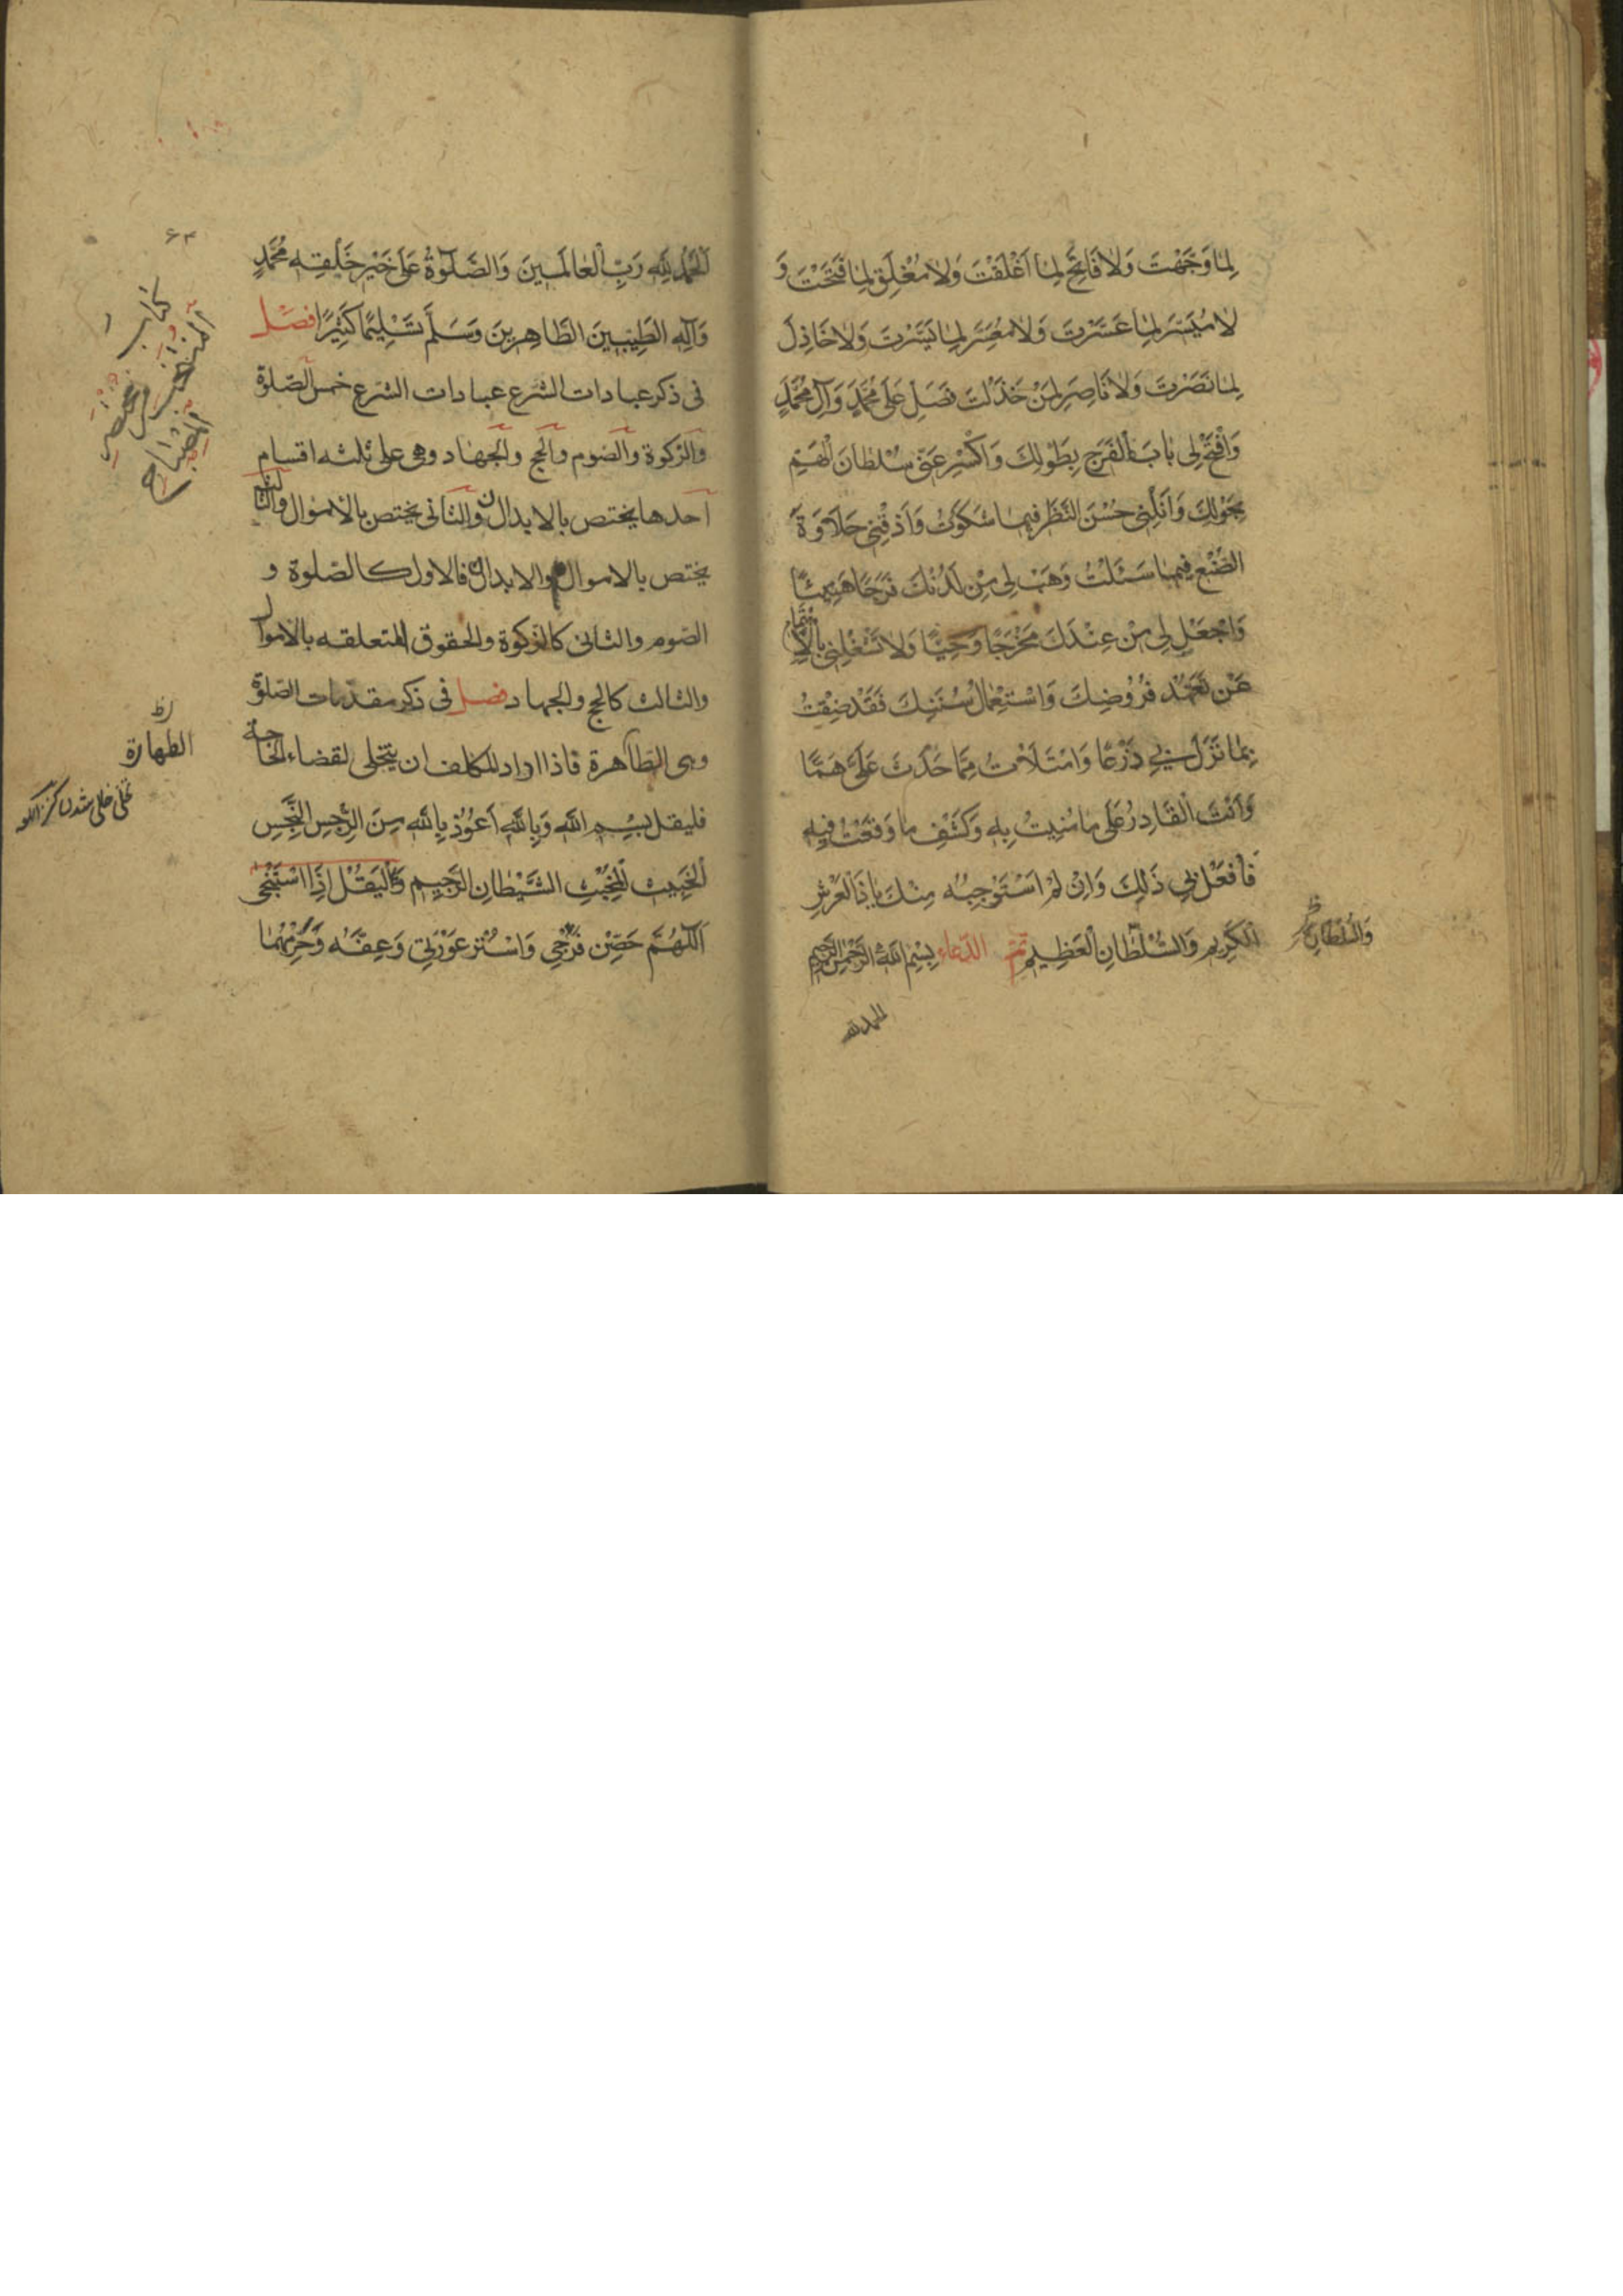 لِمَا وَجَّهْتَ وَلَا فَاتِحَ لِمَا اَغْلَقْتَ وَلَا مُغْلِقَ لِمَا فَتَحْتَ وَ
لَا مُيَسِّرَ لِمَا عَسَّرْتَ وَلَا مُعَسِّرَ لِمَا يَسَّرْتَ وَلَا خَاذِلَ
لِمَا نَصَرْتَ وَلَا نَاصِرَ لِمَنْ خَذَلْتَ فَصَلِّ عَلَى مُحَمَّدٍ وَآلِ مُحَمَّدٍ
وَافْتَحْ لِي بَابَ الْفَرَجِ بِطَوْلِكَ وَاكْسِرْ عَنِّي سُلْطَانَ الْهَمِّ
بِحَوْلِكَ وَاَنِلْنِي حُسْنَ النَّظَرِ فِيمَا شَكَوْتُ وَاَذِقْنِي حَلَاوَةَ
الصُّنْعِ فِيمَا سَئَلْتُ وَهَبْ لِي مِنْ لَدُنْكَ فَرَجًا هَنِيئًا
وَاجْعَلْ لِي مِنْ عِنْدِكَ مَخْرَجًا وَحِيًّا وَلَا تَشْغَلْنِي بِالْاِهْتِمَامِ
عَنْ تَعَهُّدِ فُرُوضِكَ وَاسْتِعْمَالِ سُنَّتِكَ فَقَدْ ضِقْتُ
بِمَا نَزَلَ بِي ذَرْعًا وَامْتَلَأْتُ مِمَّا حَدَثَ عَلَيَّ هَمًّا
وَاَنْتَ الْقَادِرُ عَلَى مَا مُنِيتُ بِهِ وَكَشْفِ مَا وَقَعْتُ فِيهِ
فَافْعَلْ بِي ذَلِكَ وَاِنْ لَمْ اَسْتَوْجِبْهُ مِنْكَ يَا ذَا الْعَرْشِ
الْكَرِيمِ وَالسُّلْطَانِ الْعَظِيمِ تمّ الدعاء بِسْمِ اللهِ الرَّحْمٰنِ الرَّحِيمِ
وَالسُّلْطَانِ
الحمد لله
۶۳
اَلْحَمْدُ لِلّٰهِ رَبِّ الْعَالَمِينَ وَالصَّلٰوةُ عَلَى خَيْرِ خَلْقِهِ مُحَمَّدٍ
وَآلِهِ الطَّيِّبِينَ الطَّاهِرِينَ وَسَلَّمَ تَسْلِيمًا كَثِيرًا فصل
فى ذكر عبادات الشرع عبادات الشرع خمس الصّلوة
والزكوة والصوم والحج والجهاد وهى على ثلثه اقسام
احدها يختص بالابدان والثانى يختص بالاموال والثالث
يختص بالاموال والابدان فالاول كالصّلوة و
الصّوم والثانى كالزكوة والحقوق المتعلقه بالاموال
والثالث كالحج والجهاد فصل فى ذكر مقدّمات الصّلوة
وهى الطّاهرة فاذا اراد المكلف ان يتخلى لقضاء الحاجة
فليقل بِسْمِ اللّٰهِ وَبِاللّٰهِ اَعُوْذُ بِاللّٰهِ مِنَ الرِّجْسِ النَّجِسِ
الْخَبِيثِ الْمُخْبِثِ الشَّيْطَانِ الرَّجِيمِ وَلْيَقُلْ اِذَا اسْتَنْجَى
اَللّٰهُمَّ حَصِّنْ فَرْجِي وَاسْتُرْ عَوْرَتِي وَعِفَّهُ وَحَرِّمْهُمَا
كتاب
المنتخب من مختصر
المصباح
الطهارة